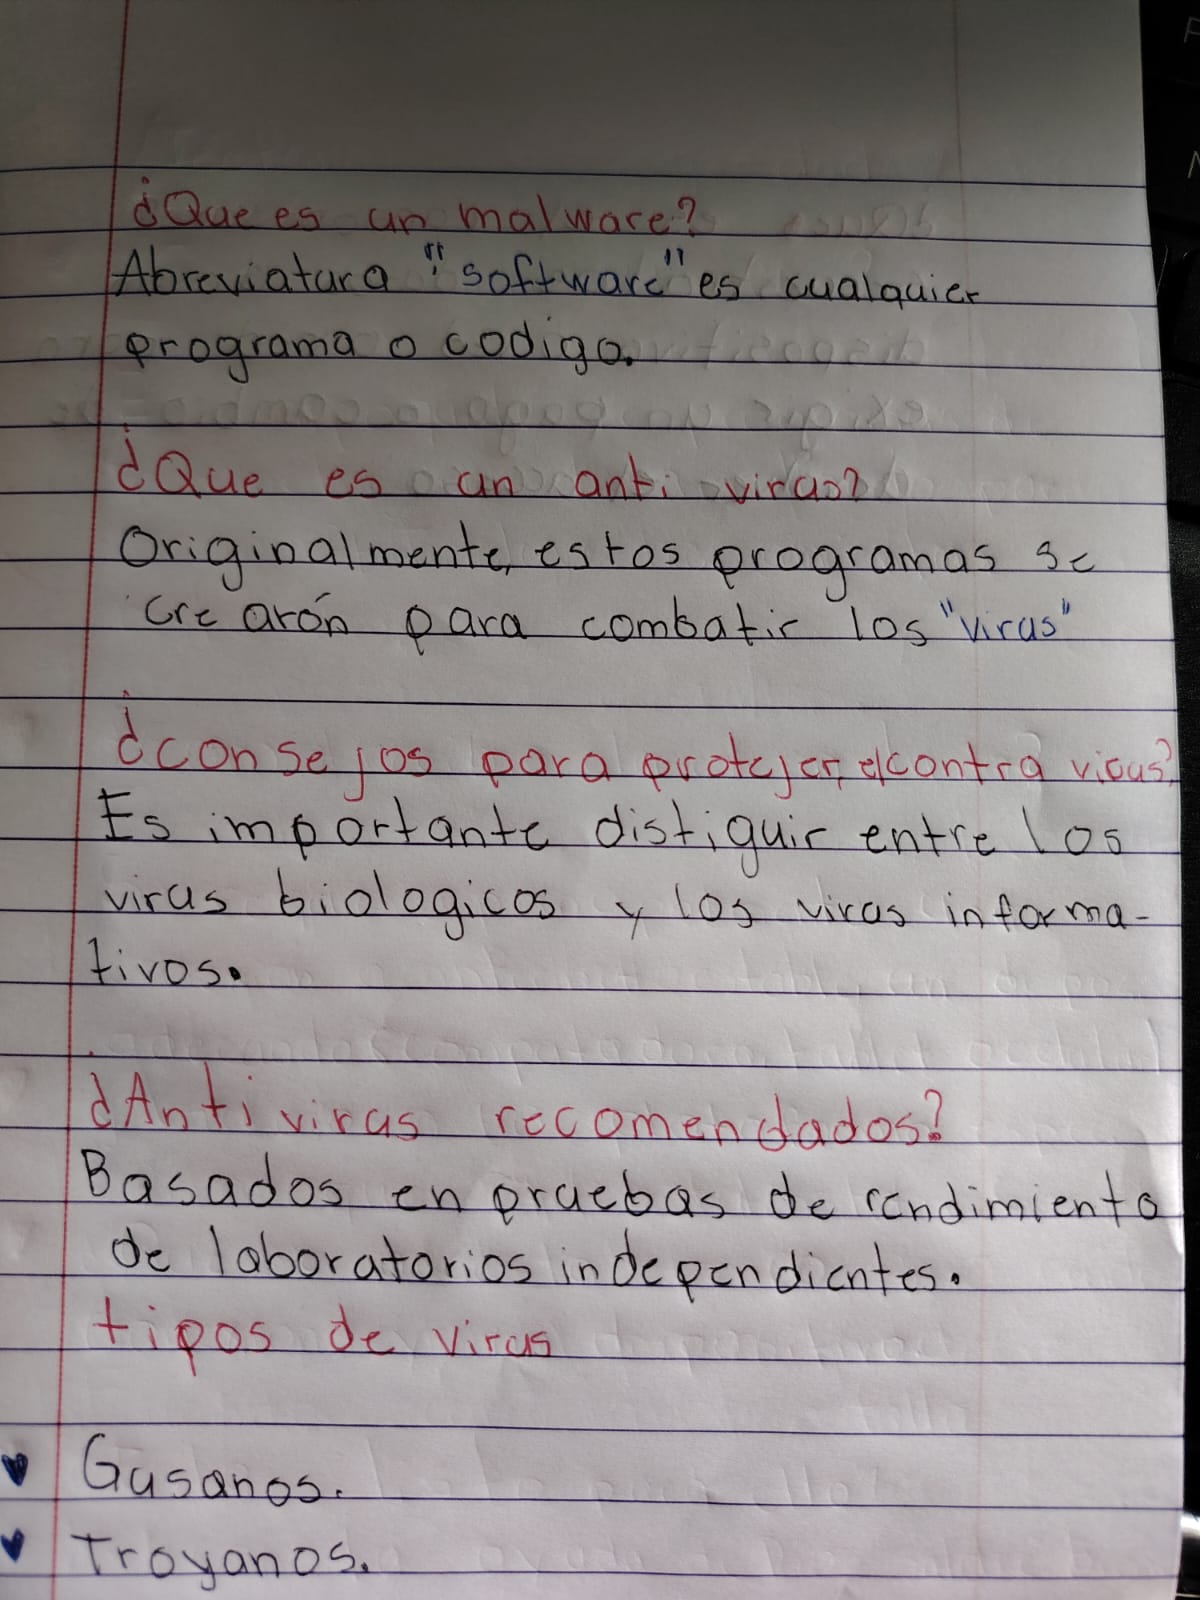 ¿Que es un malware?
Abreviatura "software" es cualquier
programa o codigo.
¿Que es un anti virus?
Originalmente, estos programas se
crearón para combatir los "virus"
¿consejos para protejer, el contra virus?
Es importante distiguir entre los
virus biologicos y los virus informa-
tivos.
¿Antivirus recomendados?
Basados en pruebas de rendimiento
de laboratorios independientes.
tipos de virus
Gusanos.
Troyanos.